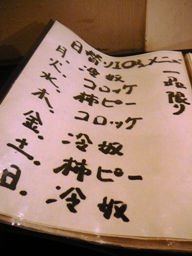 日替り10円メニュー
一品限り
月、冷奴
火、コロッケ
水、柿ピー
木、コロッケ
金、冷奴
土、柿ピー
日、冷奴